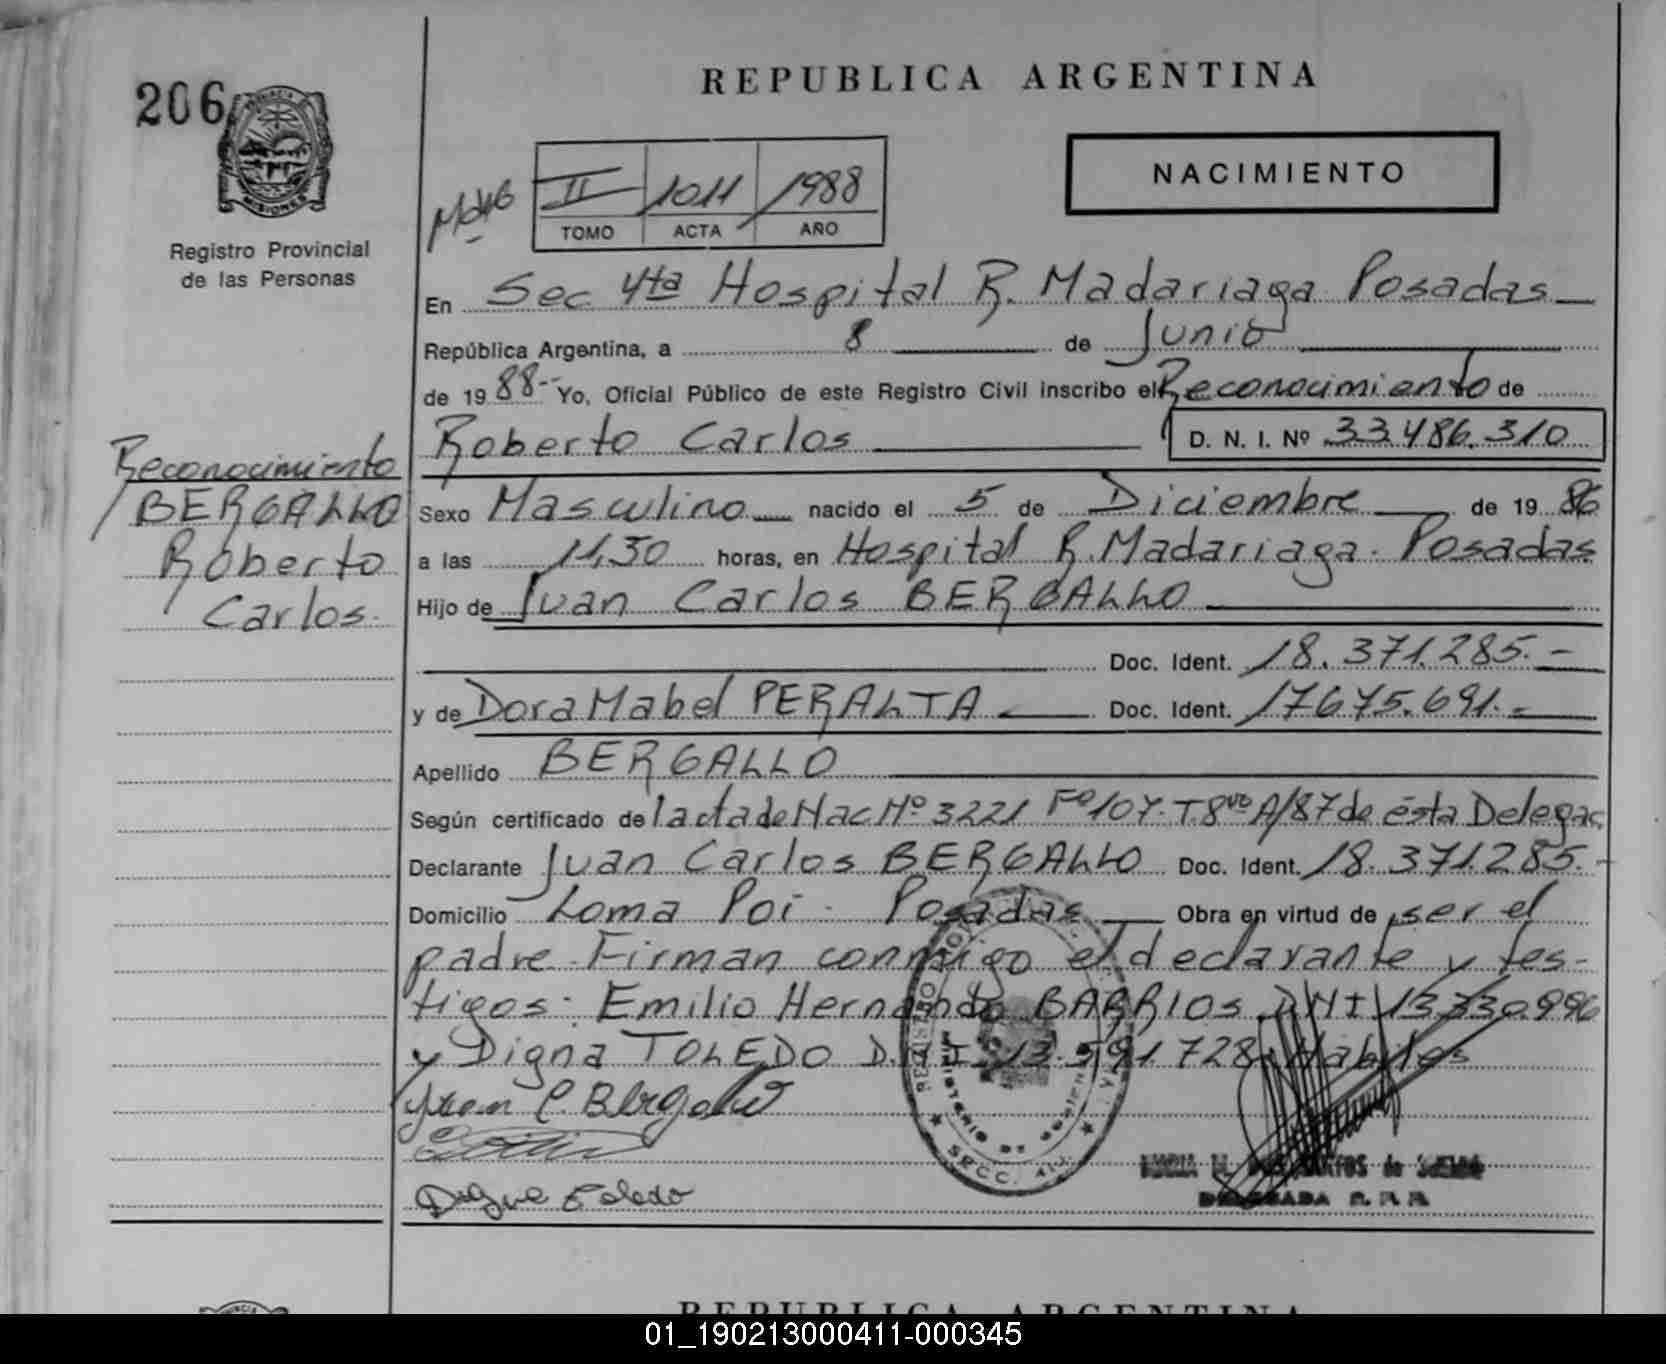 206
PROVINCIA DE
MISIONES
Registro Provincial
de las Personas
REPUBLICA ARGENTINA
NACIMIENTO
II 1011 1988
TOMO ACTA AÑO
En Sec 4ta Hospital R. Madariaga Posadas
República Argentina, a 8 de Junio
de 1988-- Yo, Oficial Público de este Registro Civil inscribo el Reconocimiento de
Roberto Carlos D. N. I. Nº 33.486.310
Reconocimiento
BERGALLO
Roberto
Carlos.
Sexo Masculino nacido el 5 de Diciembre de 1986
a las 11,30 horas, en Hospital R. Madariaga. Posadas
Hijo de Juan Carlos BERGALLO
Doc. Ident. 18.371.285.-
y de Dora Mabel PERALTA Doc. Ident. 17675.691.-
Apellido BERGALLO
Según certificado de l acta de Nac Nº 3221 Fº 107. T. 8vo A/87 de ésta Delegac
Declarante Juan Carlos BERGALLO Doc. Ident. 18.371.285.-
Domicilio Loma Poi - Posadas Obra en virtud de ser el
padre. Firman conmigo el declarante y tes-
tigos: Emilio Hernando BARRIOS DNI 13.330.996
y Digna TOLEDO D.N.I. 13.591.728. Hábiles
Juan C. Bergallo
Digna Toledo
MINISTERIO DE GOBIERNO
SECC. 4ta
DELEGADA R. P. P.
REPUBLICA ARGENTINA
01_190213000411-000345